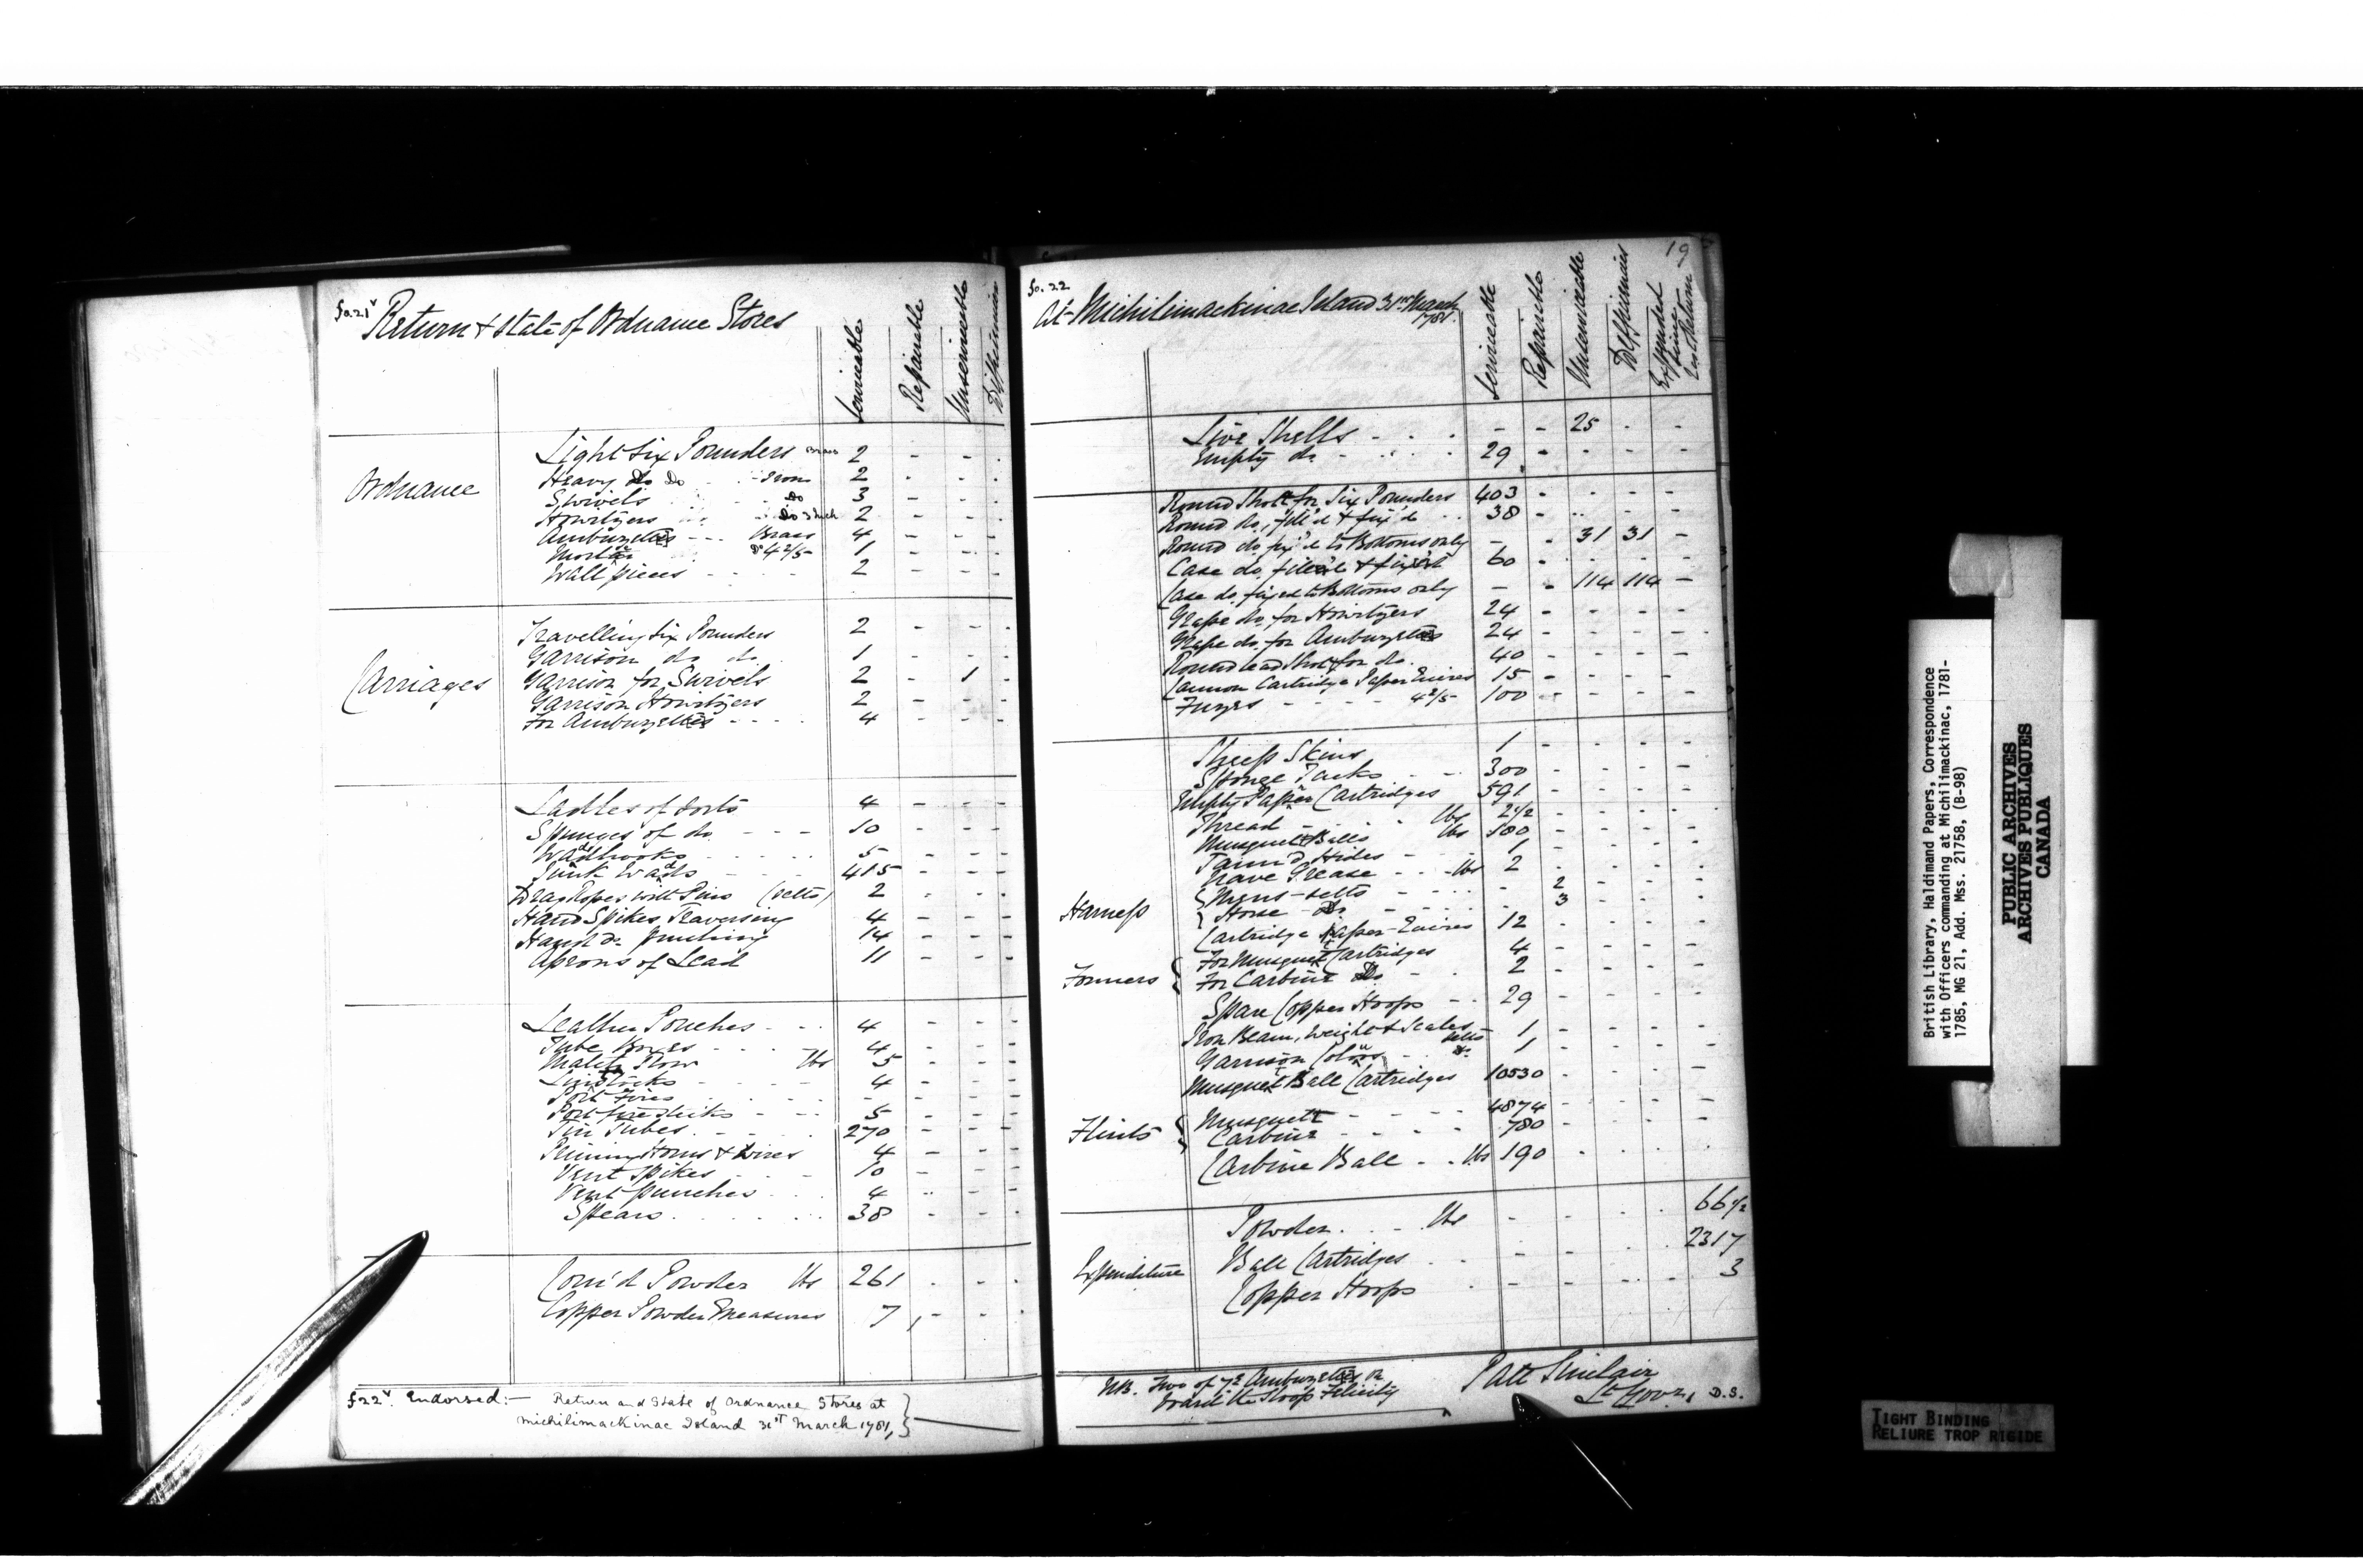 fo. 21v
Return & State of Ordnance Stores
Serviceable Repairable Unserviceable Differencies
Ordnance
Light Six Pounders Brass 2 - - -
Heavy Do Do - Iron 2 - - -
Swivels Do 3 - - -
Howitzers Do 3 Inch 2 - - -
Amburzettes - - - Brass 4 - - -
Mortar Do 4 2/5 1 - - -
Wall pieces - - - 2 - - -
Carriages
Travelling Six Pounders 2 - - -
Garrison do do 1 - - -
Garrison for Swivels 2 - 1 -
Garrison Howitzers 2 - - -
For Amburzettes - - - - 4 - - -
Ladles of sorts 4 - - -
Spunges of do - - - 10 - - -
Wadhooks - - - 5 - - -
Junk Wads - - - 415 - - -
Drag Ropes with Pins (setts) 2 - - -
Hand Spikes Traversing 4 - - -
Hand do punching 14 - - -
Aprons of Lead 11 - - -
Leather Pouches - - - 4 - - -
Tube Boxes - - - 4 - - -
Match Slow lbs 5 - - -
Linstocks - - - 4 - - -
Port Fires - - - -
Port fire sticks - - - 5 - - -
Tin Tubes - - - 270 - - -
Priming Horns & Wires 4 - - -
Vent Spikes - - - 10 - - -
Vent punches 4 - - -
Spears 38 - - -
Corn'd Powder lbs 261 - - -
Copper Powder Measures 7 - - -
f22v. Endorsed:— Return and State of Ordnance Stores at
Michilimackinac Island 31st March 1781,
19
fo. 22
At Michilimackinac Island 31st March
1781.
Serviceable Repairable Unserviceable Differencies Expended since last Return
Live Shells - - - - - 25 - -
Empty do - - - 29 - - - -
Round Shott for Six Pounders 403 - - - -
Round do, fill'd & fix'd 38 - - - -
Round do fix'd to Bottoms only - - 31 31 -
Case do fill'd & fix'd 60 - - - -
Case do fixed to Bottoms only - - 114 114 -
Grape do for Howitzers 24 - - - -
Grape do for Amburzettes 24 - - - -
Round lead Shot for do. 40 - - - -
Cannon Cartridge Paper Quires 15 - - - -
Fuzes - - - - 4 2/5 100 - - - -
Sheep Skins 1 - - - -
Sponge Tacks - - 300 - - - -
Empty Paper Cartridges 591 - - - -
Thread - - - lbs 2 1/2 - - - -
Musquet Balls lbs 100 - - - -
Tann'd Hides - 1 - - - -
Nave Grease - - - lbs 2 - - - -
Harness
Mens - setts - - - - 2 - - -
Horse - Do - - - - 3 - - -
Cartridge paper - Quires 12 - - - -
Formers
For Musquet Cartridges 4 - - - -
For Carbine Do. - - 2 - - - -
Spare Copper Hoops - - 29 - - - -
Iron Beam, Weight & Scales setts 1 - - - -
Garrison Colours do. 1 - - - -
Musquet Ball Cartridges 10530 - - - -
Flints
Musquett - - - - 4874 - - - -
Carbine - - - - 780 - - - -
Carbine Ball - - lbs 190 - - - -
Expenditure
Powder - - - lbs - - - - 66 1/2
Ball Cartridges - - - - - 2317
Copper Hoops - - - - - 3
NB. Two of ye Amburzettes on
board the Sloop Felicity
Patt Sinclair
Lt Govr. D.S.
British Library, Haldimand Papers, Correspondence
with Officers commanding at Michillimackinac, 1781-
1785, MG 21, Add. Mss. 21758, (B-98)
PUBLIC ARCHIVES
ARCHIVES PUBLIQUES
CANADA
TIGHT BINDING
RELIURE TROP RIGIDE